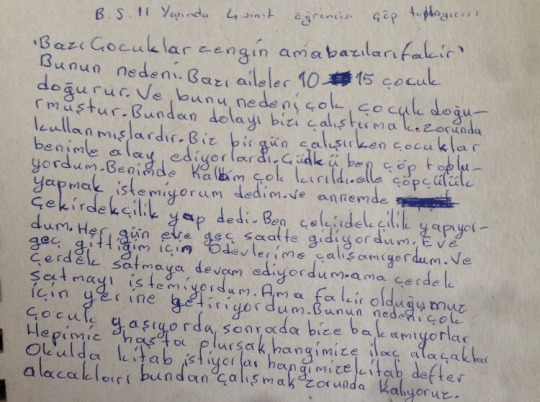 B.S. 11 Yaşında 4.sınıf öğrencisi çöp toplayıcısı
'Bazı Çocuklar zengin ama bazıları fakir'
Bunun nedeni. Bazı aileler 10 15 çocuk
doğurur. Ve bunu nedeni çok çocuk doğu-
rmuştur. Bundan dolayı bizi çalıştırmak zorunda
kullanmışlardır. Biz bir gün çalışırken çocuklar
benimle alay ediyorlardı. Çüdkü ben çöp toplu-
yordum. Benimde Kalbim çok kırıldı. elle çöpçülük
yapmak istemiyorum dedim. ve annemde
çekirdekçilik yap dedi. Ben çekirdekçilik yapıyor-
dum. Her gün eve geç saatte gidiyordum. Eve
geç gittiğim için Ödevlerime çalışamıyordum. Ve
çerdek satmaya devam ediyordum. ama çerdek
satmayı istemiyordum. Ama fakir olduğumuz
için yerine getiriyordum. Bunun nedeni çok
çocuk yaşıyordu sonrada bize bakamıyorlar
Hepimiz hasta olursak hangimize ilaç alacaklar
Okulda kitab istiyorlar hangimize kitab defter
alacakları bundan çalışmak zorunda Kalıyoruz.